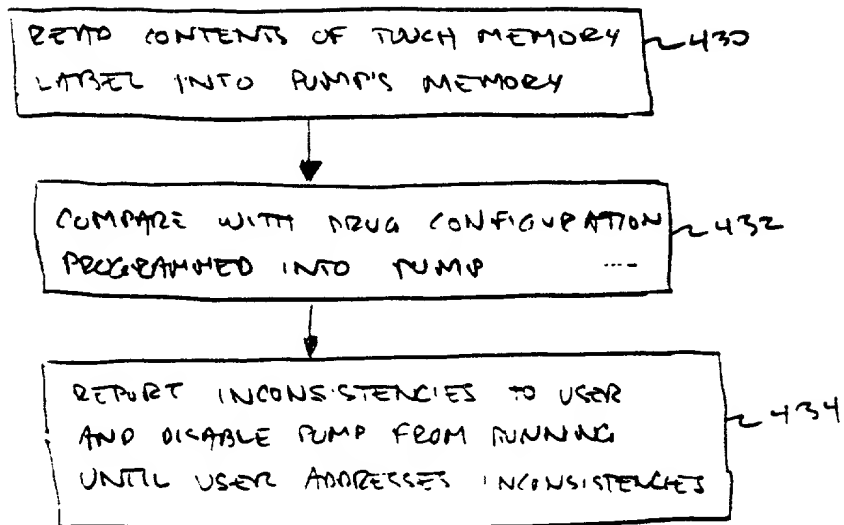 READ CONTENTS OF TOUCH MEMORY
LABEL INTO PUMP'S MEMORY
430
COMPARE WITH DRUG CONFIGURATION
PROGRAMMED INTO PUMP ----
432
REPORT INCONSISTENCIES TO USER
AND DISABLE PUMP FROM RUNNING
UNTIL USER ADDRESSES INCONSISTENCIES
434